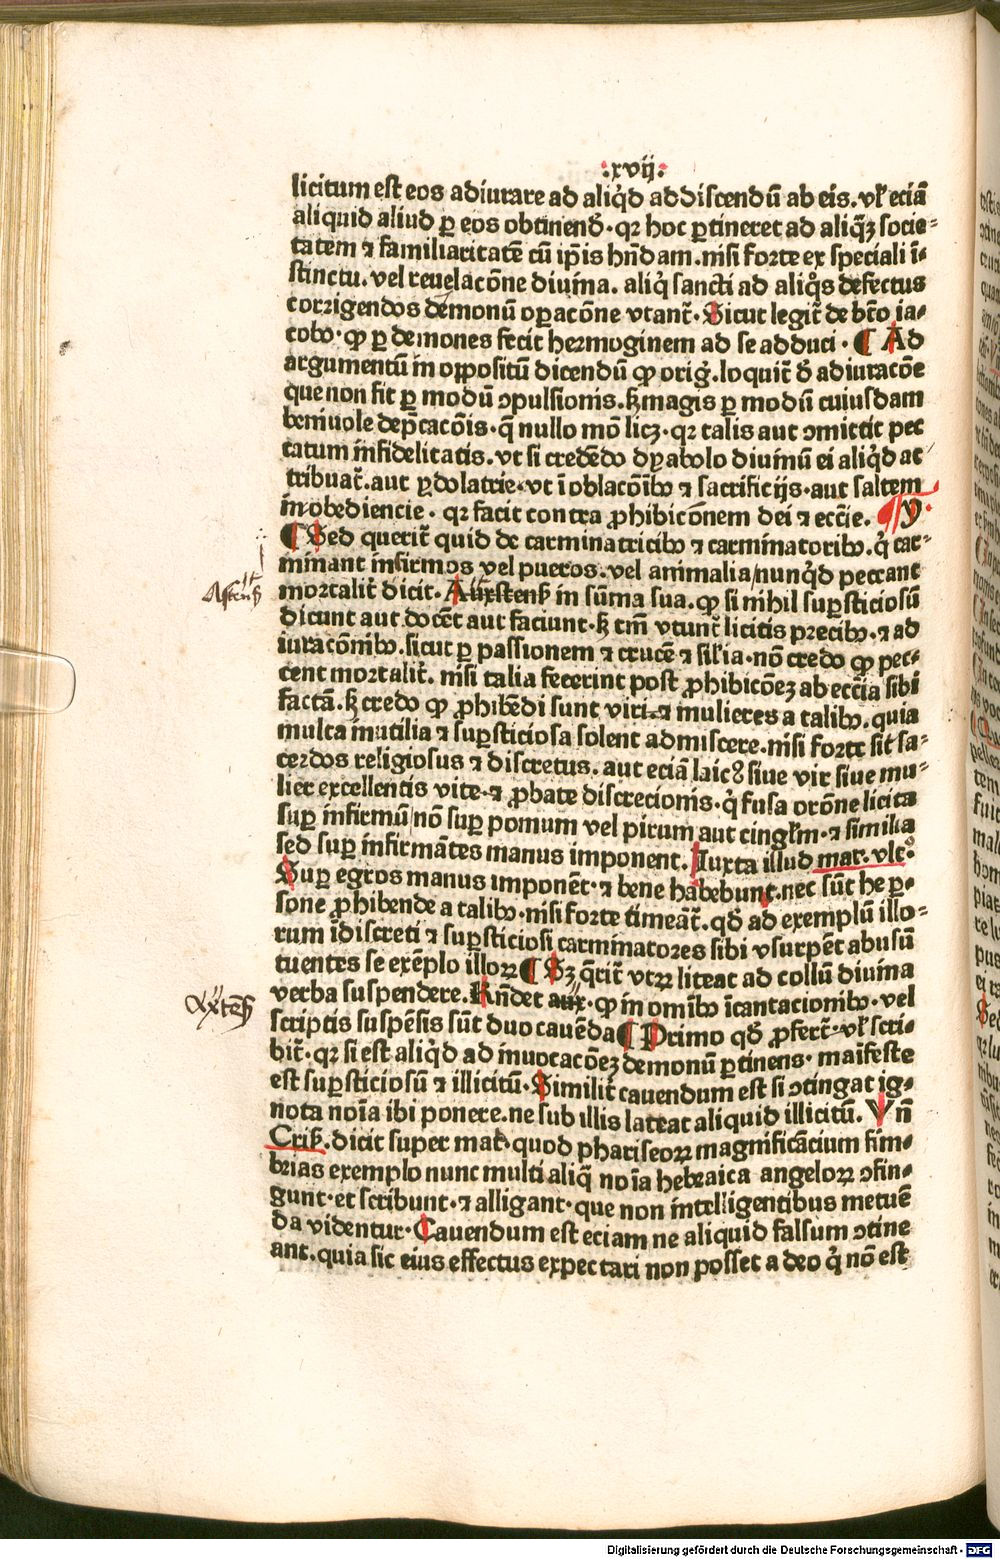 .xvij.
licitum est eos adiurare ad aliq̇d addiscendū ab eis. vl̛ eciā
aliquid aliud ꝑ eos obtinend̛· qꝛ hoc ꝑtineret ad aliq̄ꝫ socie⸗
tatem ⁊ familiaritatē cū ip̄is hn̄dam. nisi forte ex speciali ī⸗
stinctu. vel reuelacōne diuina. aliq̇ sancti ad aliq̊s defectus
corrigendos demonū oꝑacōne vtant᷑. Sicut legit᷑ de btō ia⸗
cobo· ꝙ ꝑ demones fecit hermoginem ad se adduci · ¶ Ad
argumentū in oppositū dicendū ꝙ orig̛. loquit᷑ d̛ adiuracōe
que non fit ꝑ modū ↄpulsionis. sꝫ magis ꝑ modū cuiusdam
beniuole dep̄cacōis· q̄ nullo mō licꝫ· qꝛ talis aut ↄmittit pec
catum infidelitatis. vt si credēdo dyabolo diuinū ei aliq̇d at
tribuat᷑. aut ydolatrie· vt ī oblacōībꝯ ⁊ sacrificijs· aut saltem
inobediencie · qꝛ facit contra ꝓhibicōnem dei ⁊ eccīe. ¶ y
¶ Sed querit᷑ quid de carminatricibꝯ ⁊ carminatoribꝯ. q̇ car⸗
minant infirmos vel pueros. vel animalia/nunq̇d peccant
Astens̄
mortalit᷑ dicit. Auxstens̄ in sūma sua. ꝙ si nihil suꝑsticiosū
dicunt aut docēt aut faciunt· sꝫ tm̄ vtunt᷑ licitis precibꝯ· ⁊ ad
iuracōnibꝯ. sicut ꝑ passionem ⁊ crucē ⁊ sil̛ia· nō credo ꝙ pec⸗
cent mortalit᷑. nisi talia fecerint post ꝓhibicōeꝫ ab eccīa sibi
factā. sꝫ credo ꝙ ꝓhibēdi sunt viri ⁊ mulieres a talibꝯ. quia
multa inutilia ⁊ suꝑsticiosa solent admiscere. nisi forte sit sa⸗
cerdos religiosus ⁊ discretus. aut eciā laicꝰ siue vir siue mu⸗
lier excellentis vite· ⁊ ꝓbate discrecionis· q̇ fusa orōne licita
suꝑ infirmū nō suꝑ pomum vel pirum aut cingl̛m· ⁊ similia
sed suꝑ infirmātes manus imponent. Iuxta illud mar. vlt°
Suꝑ egros manus imponēt· ⁊ bene habebunt. nec sūt he ꝑ⸗
sone ꝓhibende a talibꝯ· nisi forte timeat᷑. qd̛ ad exemplū illo⸗
rum īdiscreti ⁊ suꝑsticiosi carminatores sibi vsurpēt abusū
tuentes se exēplo illoꝝ ¶ Sꝫ q̄rit᷑ vtꝝ liceat ad collū diuina
Axtēs̄
verba suspendere. Rn̄det aux· ꝙ in omībꝯ īcantacionibꝯ· vel
scriptis suspēsis sūt duo cauēda ¶ Primo qd̛ ꝓfert᷑· vl̛ scri⸗
bit᷑· qꝛ si est aliq̇d ad inuocacōeꝫ demonū ꝑtinens· maīfeste
est suꝑsticiosū ⁊ illicitū· Similit᷑ cauendum est si ↄtingat ig⸗
nota noīa ibi ponere. ne sub illis lateat aliquid illicitū. Vn̄
Cris̄. dicit super mat̛· quod phariseoꝝ magnificācium fim⸗
brias exemplo nunc multi aliq̄ noīa hebraica angeloꝝ ↄfin⸗
gunt· et scribunt· ⁊ alligant· que non intelligentibus metuē
da videntur· Cauendum est eciam ne aliquid falsum ↄtine
ant. quia sic eius effectus expectari non posset a deo q̇ nō est
Digitalisierung gefördert durch die Deutsche Forschungsgemeinschaft - DFG